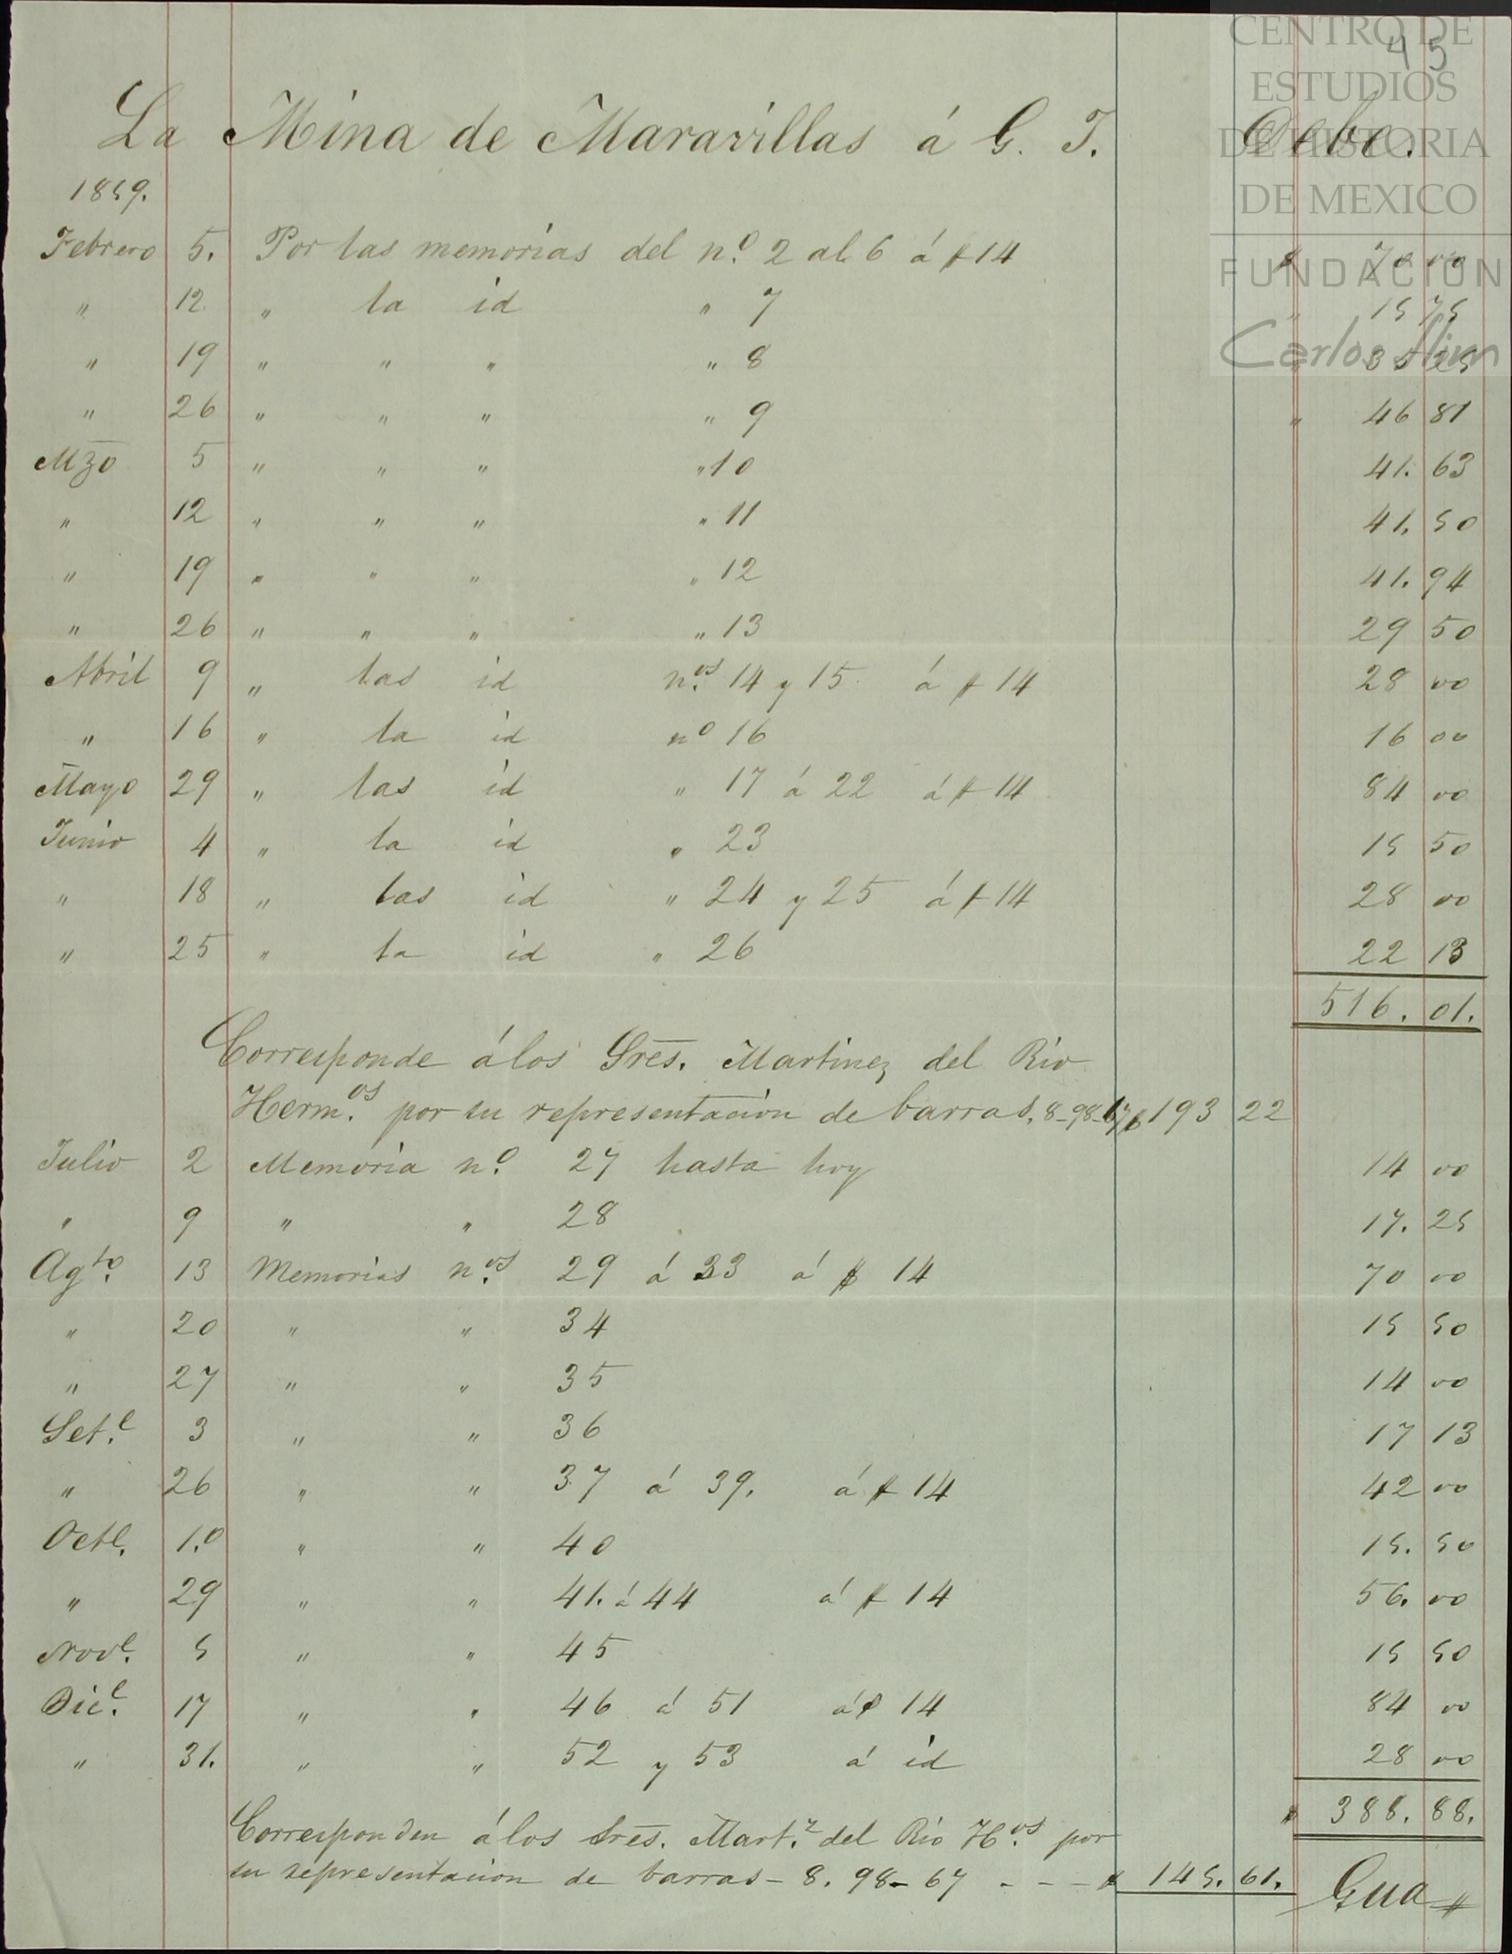 CENTRO DE
45
ESTUDIOS
DE HISTORIA
DE MEXICO
FUNDACION
Carlos Slim
La Mina de Maravillas á G. T. Debe.
1859.
Febrero 5. Por las memorias del n.º 2 al 6 á $ 14 $ 70 00
" 12 " la id " 7 " 15 75
" 19 " " " " 8 " 35 25
" 26 " " " " 9 " 46 81
Mzo 5 " " " " 10 41. 63
" 12 " " " " 11 41. 50
" 19 " " " " 12 41. 94
" 26 " " " " 13 29 50
Abril 9 " las id n.os 14 y 15 á $ 14 28 00
" 16 " la id nº 16 16 00
Mayo 29 " las id " 17 á 22 á $ 14 84 00
Junio 4 " la id " 23 15 50
" 18 " las id " 24 y 25 á $ 14 28 00
" 25 " la id " 26 22 13
516. 01.
Corresponde á los Sres. Martinez del Rio
Herm.os por su representacion de barras. 8-98-67 $ 193 22
Julio 2 Memoria n.º 27 hasta hoy 14 00
" 9 " " 28 17. 25
Agto. 13 Memorias n.os 29 á 33 á $ 14 70 00
" 20 " " 34 15 50
" 27 " " 35 14 00
Set.e 3 " " 36 17 13
" 26 " " 37 á 39. á $ 14 42 00
Octe. 1.º " " 40 15. 50
" 29 " " 41. á 44 á $ 14 56. 00
Nove. 5 " " 45 15 50
Dic.e 17 " " 46 á 51 á $ 14 84 00
" 31. " " 52 y 53 á id 28 00
$ 388. 88.
Corresponden á los Sres. Mart.z del Rio H.os por
su representacion de barras - 8. 98-67 - - - $ 145. 61.